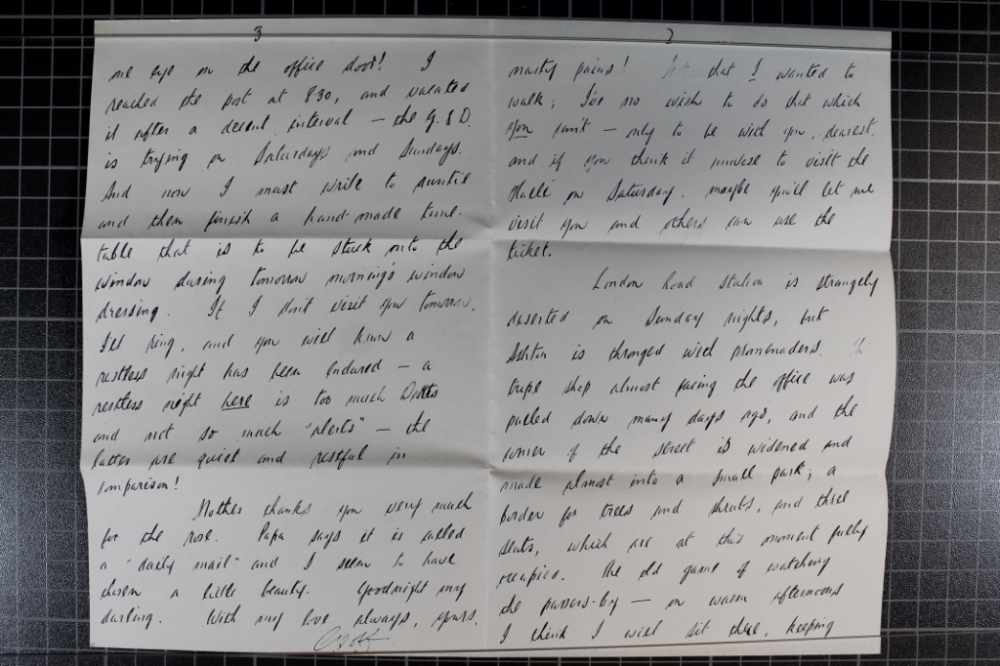 2
nasty pains! Not that I wanted to
walk, I've no wish to do that which
you can't — only to be with you, dearest.
and if you think it unwise to visit the
Hallé on Saturday. maybe you'll let me
visit you and others can use the
ticket.
London Road Station is strangely
deserted on Sunday nights, but
Ashton is thronged with promenaders.
tripe shop almost facing the office was
pulled down many days ago, and the
corner of the street is widened and
made almost into a small park, a
border for trees and shrubs, and three
seats, which are at this moment fully
occupied. The old game of watching
the passers-by — on warm afternoons
I think I will sit there, keeping
3
one eye on the office door! I
reached the post at 8.30, and vacated
it after a decent interval — the G.P.O.
is trying on Saturdays and Sundays.
And now I must write to auntie
and then finish a hand-made time-
table that is to be stuck onto the
window during tomorrow morning's window
dressing. If I don't visit you tomorrow,
I'll ring, and you will know a
restless night has been endured — a
restless night here is too much
and not so much "alerts" — the
latter are quiet and restful in
comparison!
Mother thanks you very much
for the rose. Papa says it is called
a "daily mail" and I seem to have
chosen a little beauty. Goodnight my
darling. With my love always, yours.
Geoff